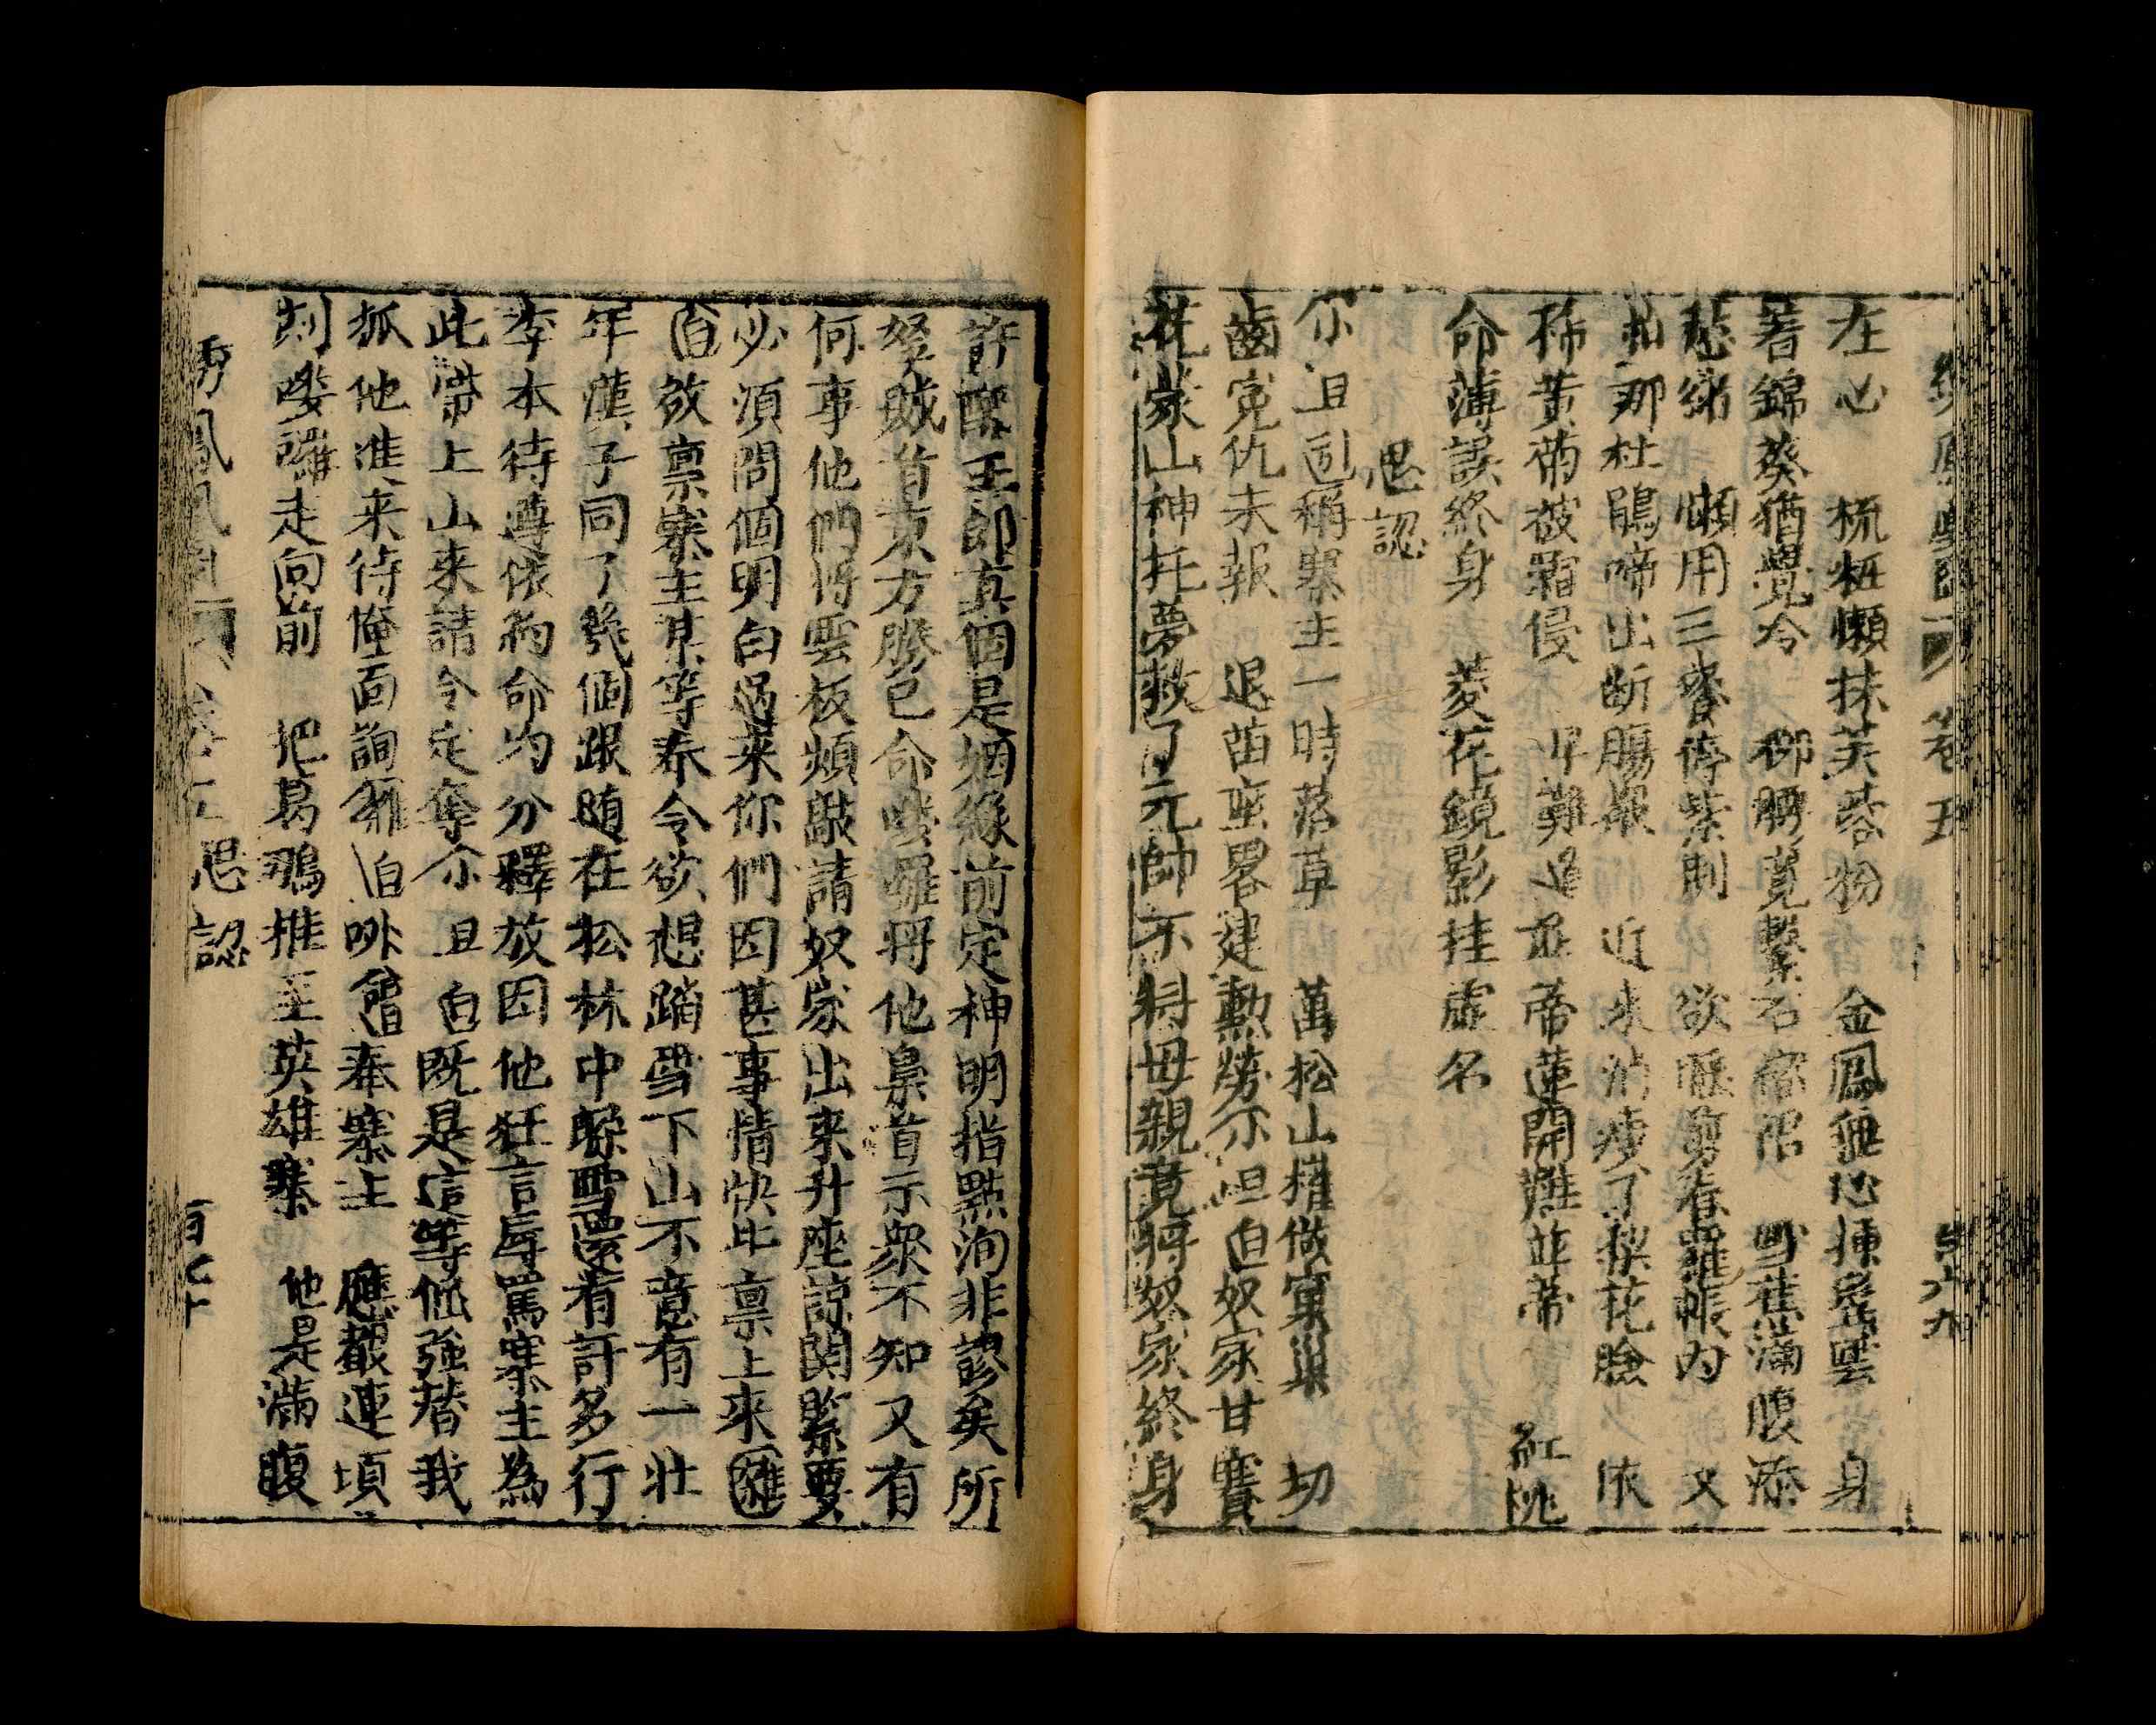 卷五
在心 梳粧懶抹芙蓉粉 金鳳無心揷髻雲 身
着錦葵猶覺冷 柳腰寬繫石榴裙 雪蕉滿腹添
愁緒 懶用三飡停紫荆 欲睡剪春羅帳內 又
那杜鵑啼出断腸聲 近來消瘦了梨花臉 依
稀黄菊被霜侵 並蒂蓮開難並蒂 紅桃
命薄誤終身 菱花鏡影挂虛名
思認
尒且 稱寨主一時落草 萬松山權做窠巢 切
齒冤仇未報 退苗蛮畧建勲勞尒旦 奴家甘賽
花家山神托夢救了元帥不料母親竟將奴家終身
許配王郎真個是姻緣前定神明指點洵非謬矣所
拏賊首東方勝已命嘍囉將他梟首示衆不知又有
何事他們將雲板頻敲請奴家出來升座諒関緊要
必須問個明白過來你們因甚事情快些禀上來雜
白啟禀寨主某等奉令欲想踏雪下山不意有一壯
年漢子同了幾個跟随在松林中躱雪還有許多行
李本待遵依約命為分釋放因他狂言辱罵寨主為
此帶上山來請令定奪尒旦白既是這等倔強替我
抓他進來待俺面詢雜白吥 奉寨主 應聲連頃
刻嘍囉走向前 把葛鵰推至英雄寨 他是滿腹
鳳凰 卷五 思認 百七十